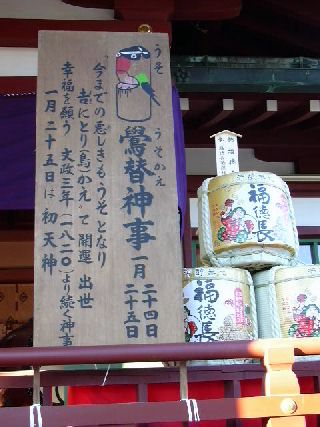 うそ
うそかえ
鷽替神事 一月 二十四日
二十五日
今までの悪しきもうそとなり
吉にとり(鳥)かえて開運 出世
幸福を願う 文政三年(一八二〇)より続く神事
一月二十五日は 初天神
福徳長
福徳長
福徳長